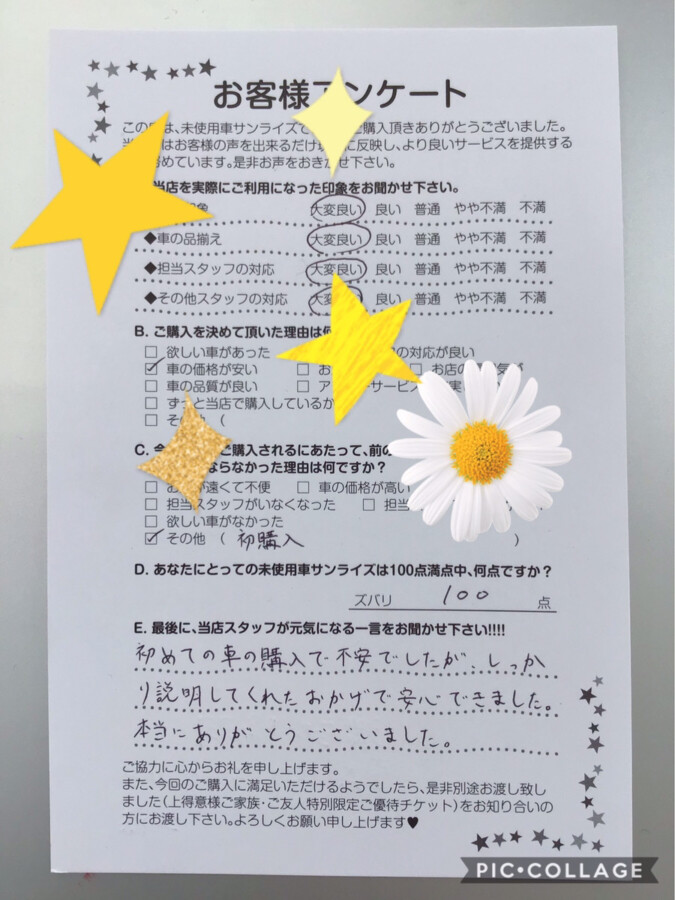 お客様アンケート
この は、未使用車サンライズで ご購入頂きありがとうございました。
当 はお客様の声を出来るだけ に反映し、より良いサービスを提供する
努めています。是非お声をおきかせ下さい。
当店を実際にご利用になった印象をお聞かせ下さい。
象 大変良い 良い 普通 やや不満 不満
◆車の品揃え 大変良い 良い 普通 やや不満 不満
◆担当スタッフの対応 大変良い 良い 普通 やや不満 不満
◆その他スタッフの対応 大変良い 良い 普通 やや不満 不満
B. ご購入を決めて頂いた理由は何
□ 欲しい車があった の対応が良い
☑ 車の価格が安い □ お □ お店の 気が
□ 車の品質が良い □ ア ーサービス 実
□ ずっと当店で購入しているか
□ そ 他 (
C. 今 ご購入されるにあたって、前の
ならなかった理由は何ですか?
□ お が遠くて不便 □ 車の価格が高い
□ 担当スタッフがいなくなった □ 担当
□ 欲しい車がなかった
☑ その他 ( 初購入 )
D. あなたにとっての未使用車サンライズは100点満点中、何点ですか?
ズバリ 100 点
E. 最後に、当店スタッフが元気になる一言をお聞かせ下さい!!!!
初めての車の購入で不安でしたが、しっか
り説明してくれたおかげで安心できました。
本当にありがとうございました。
ご協力に心からお礼を申し上げます。
また、今回のご購入に満足いただけるようでしたら、是非別途お渡し致し
ました(上得意様ご家族・ご友人特別限定ご優待チケット)をお知り合いの
方にお渡し下さい。よろしくお願い申し上げます♥
PIC•COLLAGE